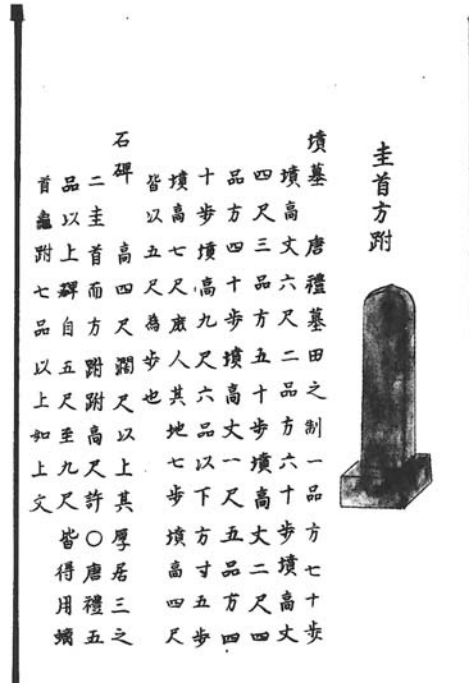 圭首方跗
墳墓 唐禮墓田之制一品方七十步
墳高丈六尺二品方六十步墳高丈
四尺三品方五十步墳高丈二尺四
品方四十步墳高丈一尺五品方四
十步墳高九尺六品以下方寸五步
墳高七尺庶人其地七步墳高四尺
皆以五尺為步也
石碑 高四尺濶尺以上其厚居三之
二圭首而方跗跗高尺許○唐禮五
品以上碑自五尺至九尺皆得用螭
首龜跗七品以上如上文